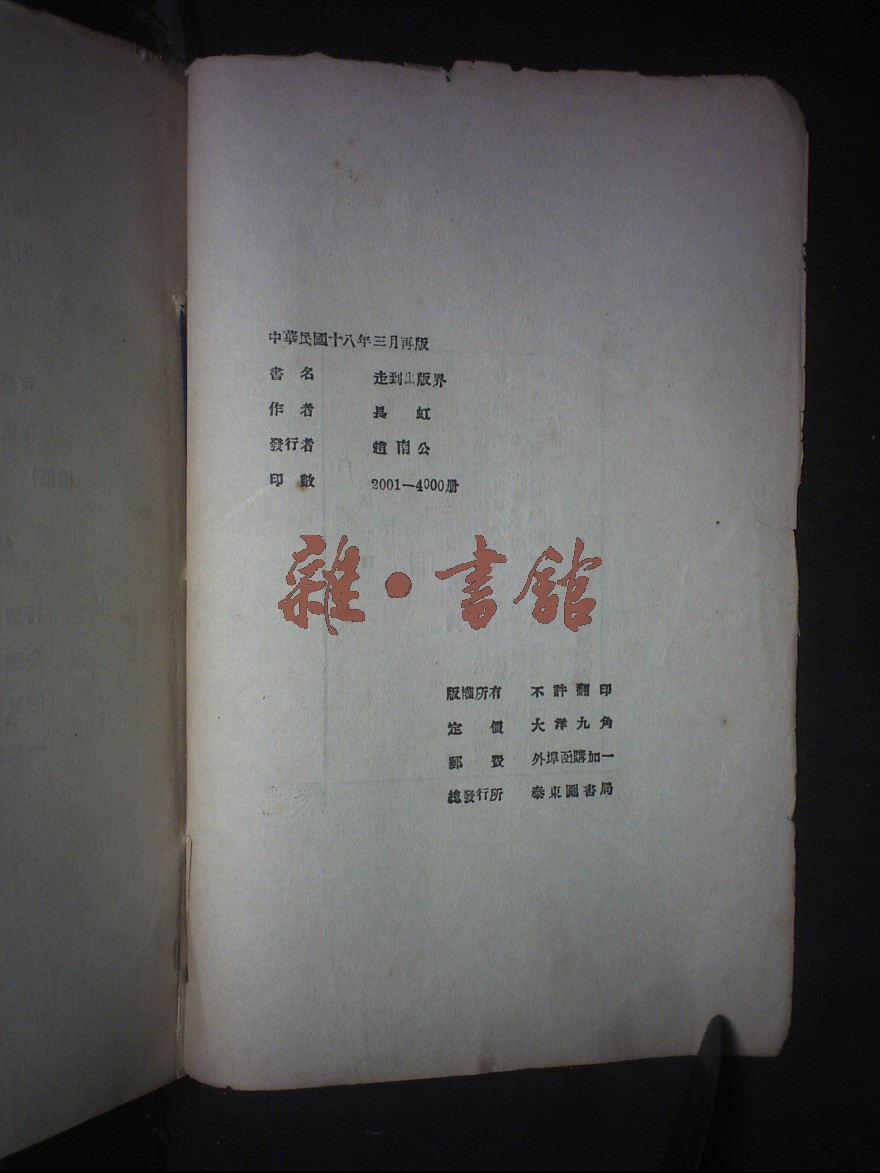 中華民國十八年三月再版
書名 走到出版界
作者 長虹
發行者 趙南公
印數 2001—4000册
雜·書館
版權所有 不許翻印
定價 大洋九角
郵費 外埠函購加一
總發行所 泰東圖書局